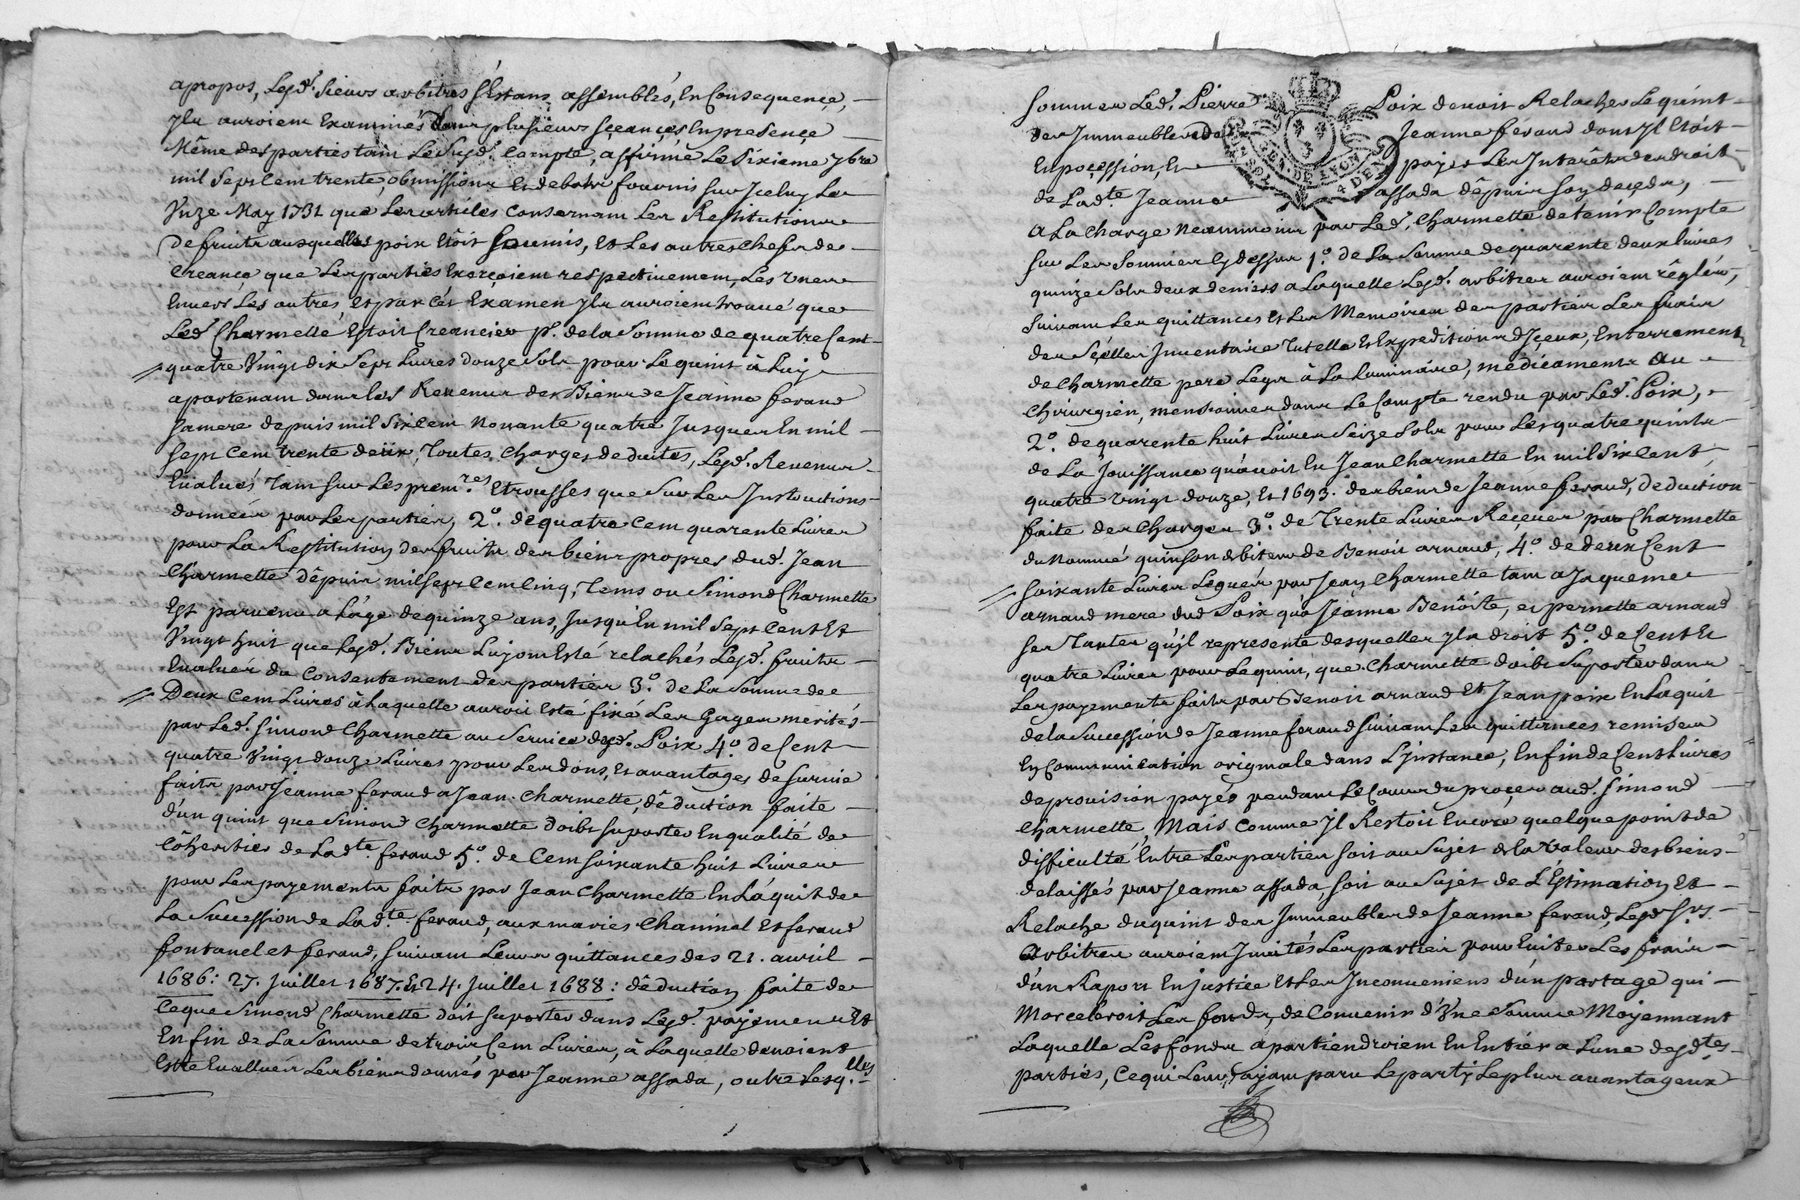 apropos, Lesd. sieurs arbitres s'Estans assemblés, En Consequence,
yls auroient Examinés dans plusieurs sceances En presence
Même des parties tant Le Susd. Compte, affirmé Le sixieme 7bre
mil sept cent trente obmissions Et debats fournis sur Jceluy Le
Unze May 1731 que Les articles Consernant Les Restitutions
de fruits ausquelles poix Etoit soumis, Et Les autres chefs de
Creance que Les parties Exerçoient respectivement, Les Unes
Envers Les autres et par cet Examen yls auroient trouvé que
Led. Charmette Estoit Creancier p.º de la somme de quatre Cent
quatre Vingt dix sept Livres douze sols pour Le quint à Luy
apartenant dans les Revenus des Biens de Jeanne feraud
sa mere depuis mil six cent Nonante quatre Jusques En mil
sept cent trente deux, Toutes Charges deduites, Lesd. Revenus
Evalués Tant sur Les prem.res Etrousses que sur Les Jnstructions
données par Les parties, 2.º de quatre cent quarente Livres
pour La Restitution des fruits des biens propres dud. Jean
Charmette dêpuis mil sept cent cinq, Tems ou Simond Charmette
Est parvenu a L'âge de quinze ans, Jusqu'En mil sept Cent Et
Vingt huit que Lesd. Biens Luy ont Esté relachés Lesd. fruits
Evalués du Consentement des parties 3.º de La Somme de
Deux Cent Livres à Laquelle auroit Esté fixé Les Gages merités
par Led. Simond Charmette au Service dud. Poix 4.º de Cent
quatre Vingt douze Livres pour Les dons, Et avantages de survie
faits par Jeanne feraud a Jean Charmette, dêduction faite
d'un quint que Simond Charmette doibt suporter En qualité de
Cohéritier de Lad.te feraud 5.º de Cent soixante huit Livres
pour Les payements faits par Jean Charmette En L'aquit de
La Succession de Lad.te feraud, aux maries Chaninal Et feraud
fontanel et feraud, suivant Leurs quittances des 21. avril
1686: 27. Juillet 1687. & 24. Juillet 1688: dêduction faite de
Ceque Simond Charmette doit suporter dans Lesd. payements Et
En fin de La Somme de trois Cent Livres, à Laquelle devoient
Estre Evallués Les biens donnés par Jeanne assada, outre Lesq.lles
sommes Led. Pierre Poix devoit Relacher Le quint
des Jmmeubles de Jeanne feraud dont Yl Etoit
En possession, Et payer Les Interêts des droits
de Lad.te Jeanne assada dêpuis son decedz,
A La charge neanmoins par Led. Charmette de tenir Compte
sur Les sommes Cy dessus 1.º de La somme de quarente deux Livres
quinze sols deux deniers a Laquelle Lesd. arbitres auroient réglés,
suivant Les quittances Et Les Memoires des parties Les frais
des sçellés Jnventaire Tutelle Et Expeditions d'Jceux, Enterrement
de Charmette pere Legs à La Luminaire, médicaments au
Chirurgien, mentionnés dans Le Compte rendu par Led. Poix,
2.º de quarente huit Livres seize sols pour Les quatre quints
de La Jouissance qu'avoit Eu Jean Charmette En mil six Cent
quatre Vingt douze, Et 1693. des biens de Jeanne feraud, deduction
faite des Charges 3.º de Trente Livres Reçeues par Charmette
du Nommé quinson debiteur de Benoit arnaud, 4.º de deux Cent
soixante Livres Leguées par Jean Charmette tant a Jaqueme
arnaud mere dud Poix qu'a Jeanne Benoite, et pernette arnaud
ses Tantes qu'jl represente desquelles yl a droit 5.º de Cent Et
quatre Livres pour Le quint, que Charmette doibt suporter dans
Les payements faits par Benoit arnaud Et Jean poix En L'aquit
de la Succession de Jeanne feraud suivant Les quittances remises
En Communication originale dans L'jnstance, En fin de Cent Livres
de provision payés pendant Le Cours du proçes aud. Simond
Charmette, Mais comme Jl Restoit Encore quelque point de
difficulté Entre Les parties soit au Sujet de La Valeur des biens
delaissés par Jeanne assada, soit au Sujet de L'Estimation Et
Relache du quint des Jmmeubles de Jeanne feraud, Lesd. Srs.
Arbitres auroient Jnvités Les parties pour Eviter Les frais
d'un Raport En justice Et Les Jnconveniens d'un partage qui
Morceleroit Les fonds, de Convenir d'Une Somme Moyennant
Laquelle Les fonds apartiendroient En Entier a L'une desd.tes
parties, Ce qui Leur ayant paru Le party Le plus avantageux
GEN. DE LYON
4 DE